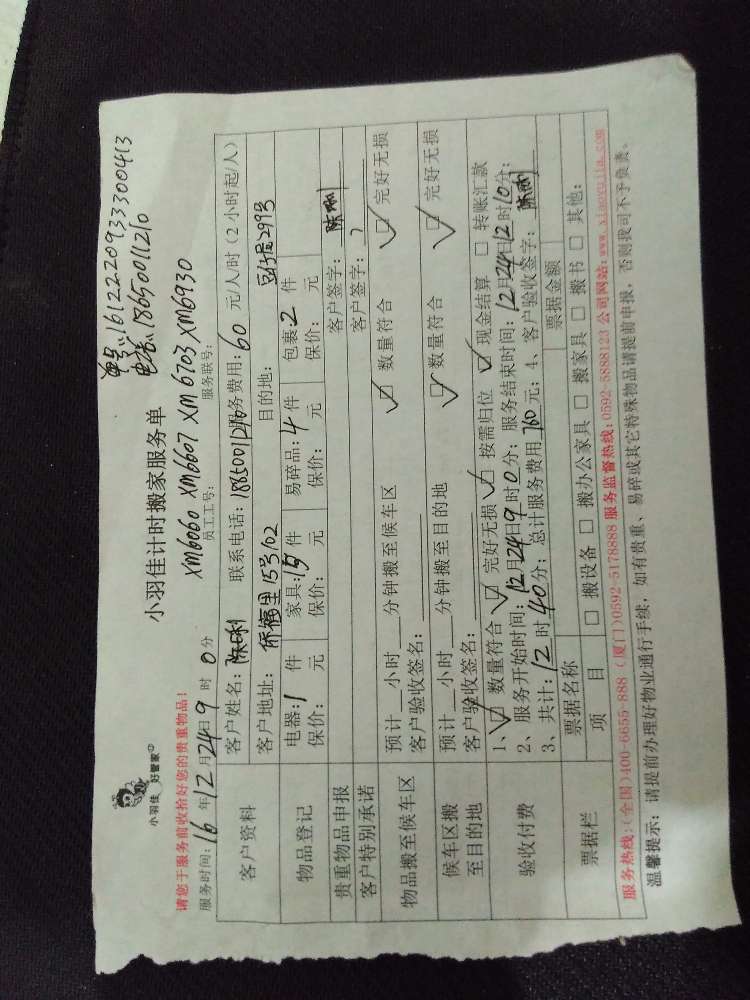 单号:161222093333300413
电话:18650011210
小羽佳
好管家
小羽佳计时搬家服务单
请您于服务前收拾好您的贵重物品!
XM6060 XM6607 XM6703 XM6930
服务时间:16年12月24日9时0分 员工工号: 服务联号:
客户资料
客户姓名: 联系电话:18650011210 服务费用:60元/人/时(2小时起/人)
客户地址:侨福里15号102 目的地:豆仔尾299号
物品登记
电器:1件 家具:15件 易碎品:4件 包裹:2件
保价: 元 保价: 元 保价: 元 保价: 元
贵重物品申报 客户签字:
客户特别承诺 客户签字:
物品搬至候车区
预计__小时__分钟搬至候车区 数量符合 完好无损
客户验收签名:
候车区搬至目的地
预计__小时__分钟搬至目的地 数量符合 完好无损
客户验收签名:
验收付费
1、数量符合 完好无损 按需归位 现金结算 转账汇款
2、服务开始时间:12月24日9时0分;服务结束时间:12月24日12时10分;
3、共计:12时40分;总计服务费用760元;4、客户验收签字:
票据栏
票据名称 票据金额
项目 搬设备 搬办公家具 搬家具 搬书 其他:
服务热线:(全国)400-6655-888 (厦门)0592-5178888 服务监督热线:0592-5888123 公司网站:www.xiaoyujia.com
温馨提示:请提前办理好物业通行手续,如有贵重、易碎或其它特殊物品请提前申报,否则我司不予负责。